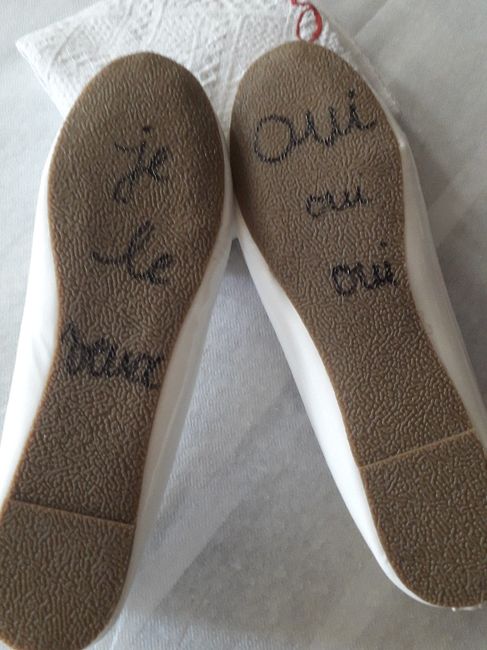 je
le
veux
oui
oui
oui